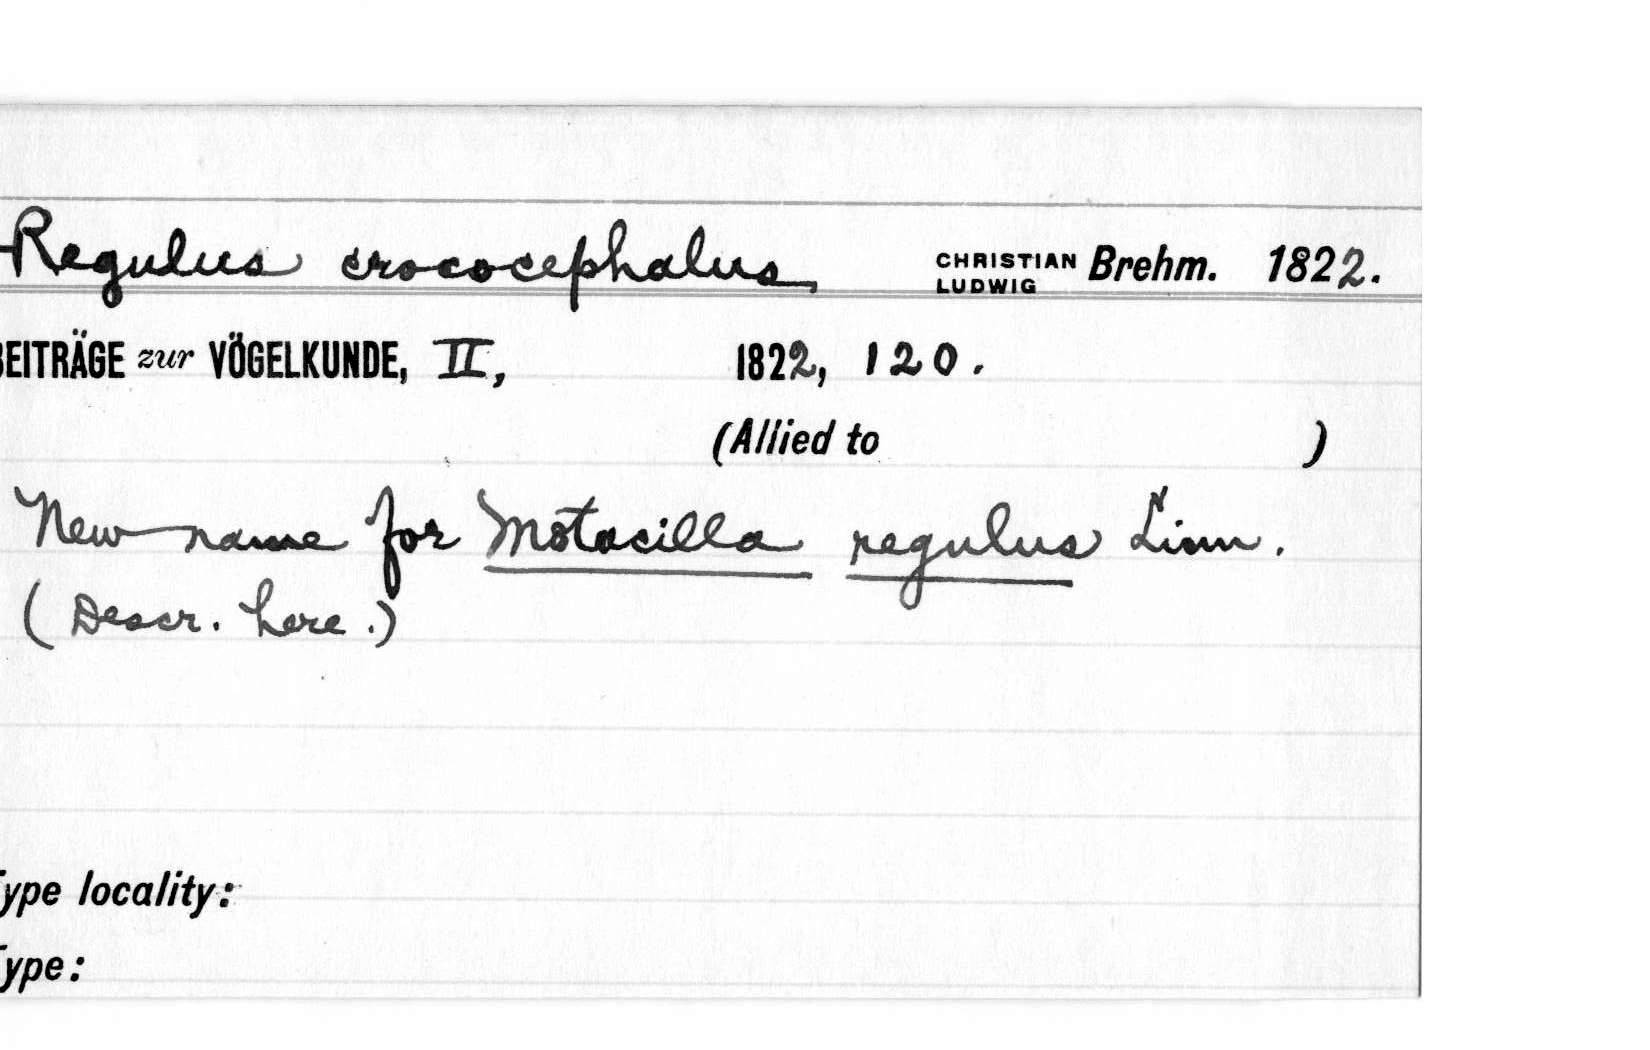 Regulus crococephalus CHRISTIAN LUDWIG Brehm. 1822.
BEITRÄGE zur VÖGELKUNDE, II, 1822, 120.
(Allied to )
New name for Motacilla regulus Linn.
(Descr. here.)
Type locality:
Type: